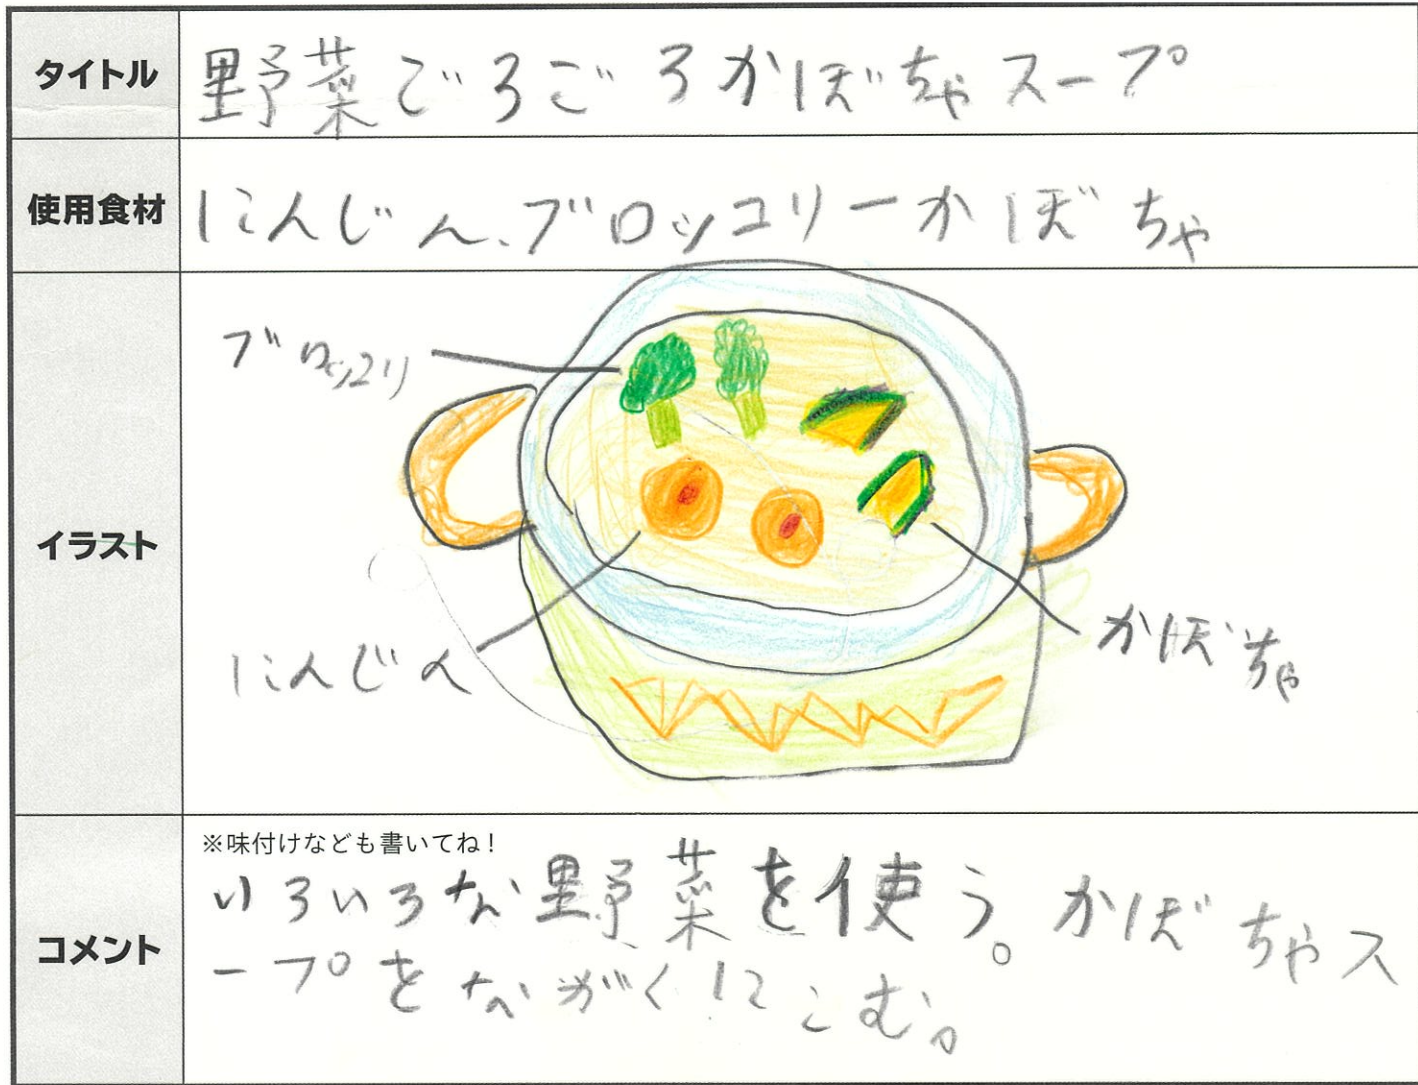 タイトル
野菜ごろごろかぼちゃスープ
使用食材
にんじん、ブロッコリーかぼちゃ
イラスト
ブロッコリ
にんじん
かぼちゃ
コメント
※味付けなども書いてね！
いろいろな野菜を使う。かぼちゃス
ープをながくにこむ。